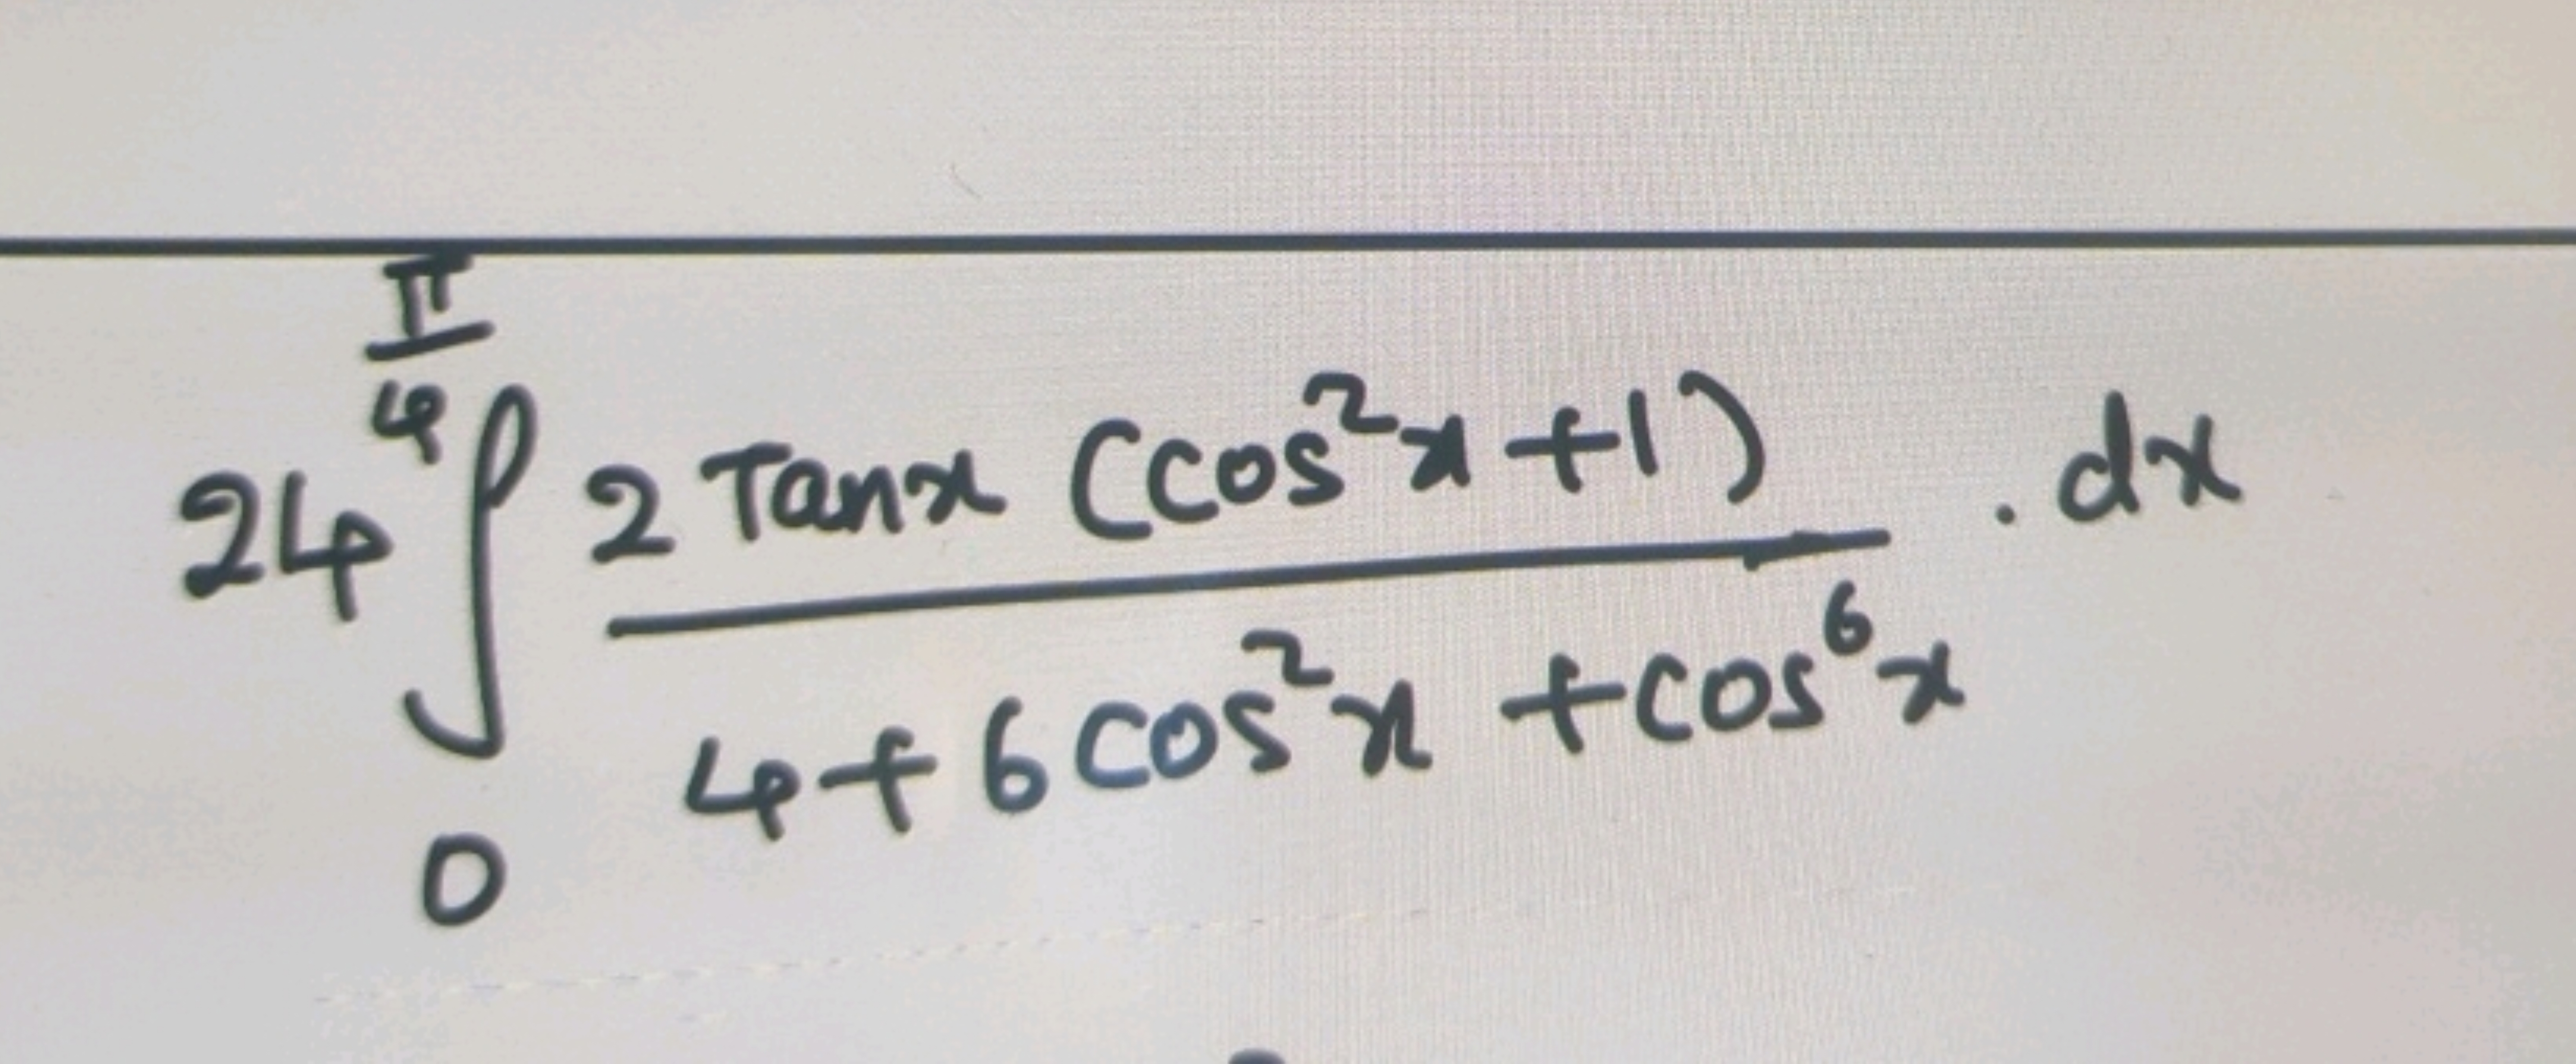 24 ∫₀^(π/4) 2 Tanx (cos²x + 1) / (4 + 6 cos²x + cos⁶x) . dx